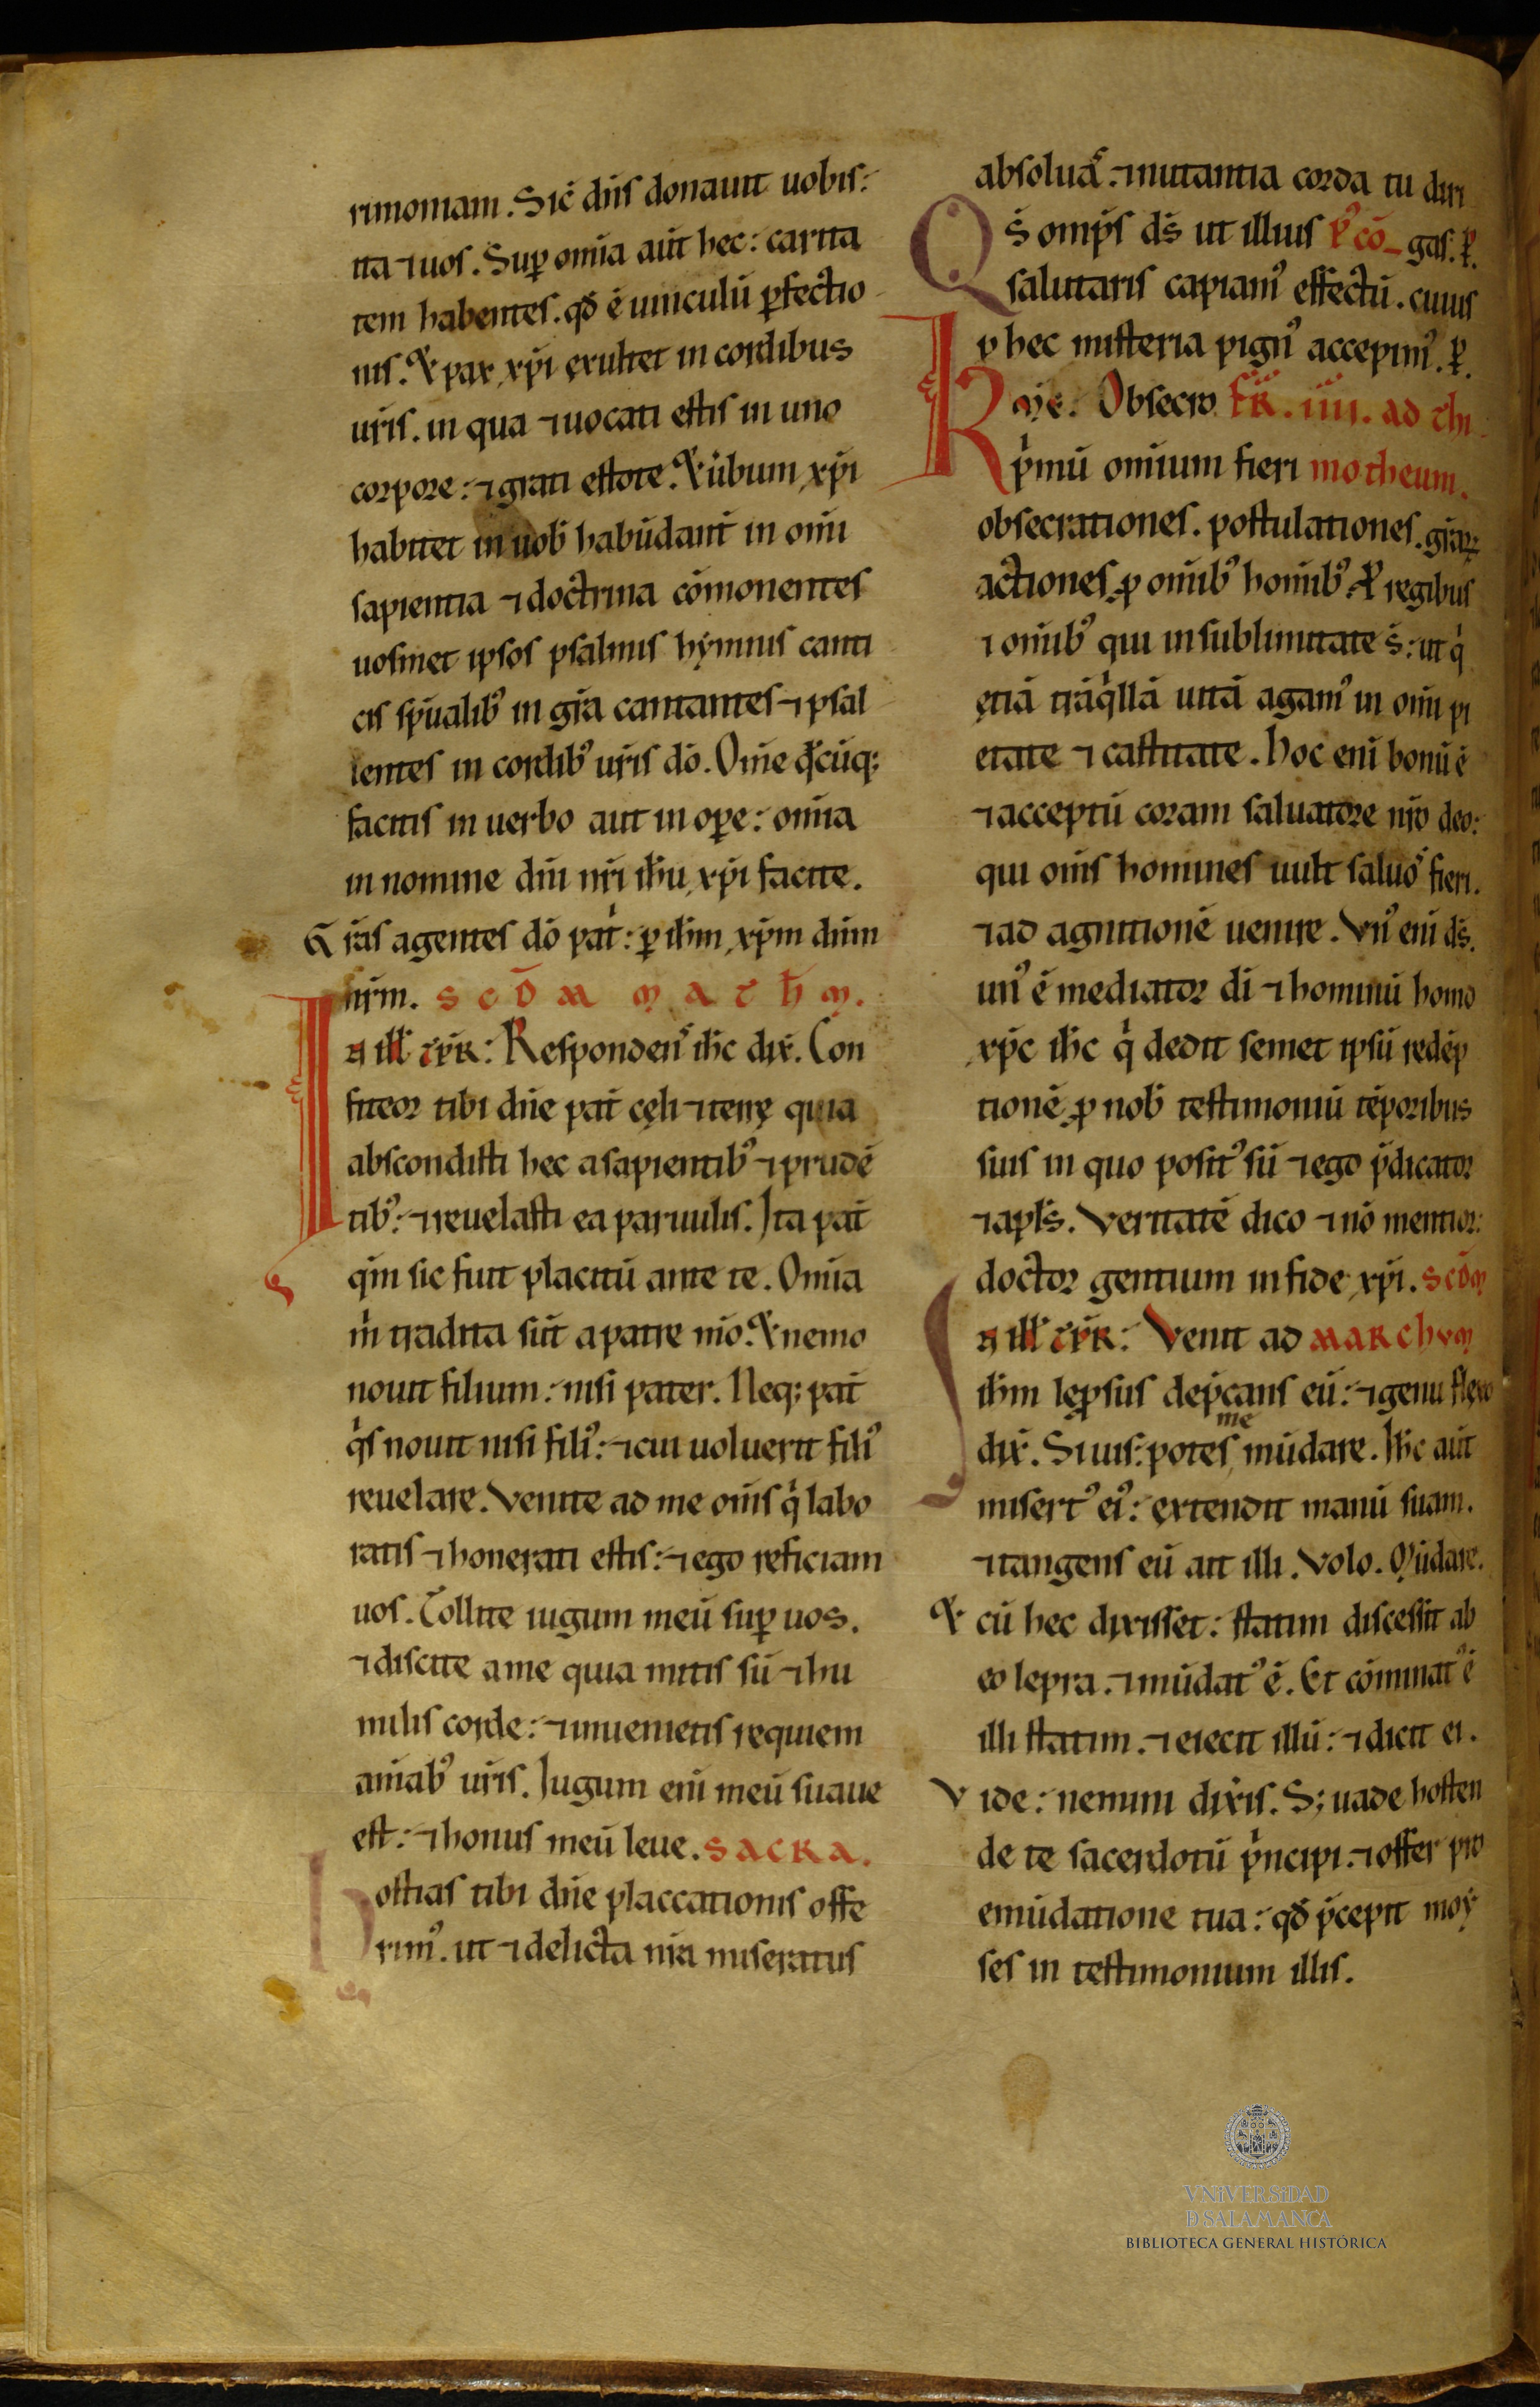 rimoniam. Sic̄ dn̄s donauit uobis:
ita ⁊ uos. Suꝑ om̄ia aūt hec: carita
tem habentes. qđ ē uinculū ꝑfectio
nis. & pax xp̄i exultet in cordibus
ur̄is. in qua ⁊ uocati estis in uno
corpore: ⁊ grati estote. & ūbum xp̄i
habitet in uob̄ habūdant̄ in om̄i
sapientia ⁊ doctrina cōmonentes
uosmet ipsos psalmis hẏmnis canti
cis sp̄ualibꝰ in gr̄a cantantes ⁊ psal
lentes in cordibꝰ ur̄is dō. Om̄e qđcūqꝫ
facitis in uerbo aut in oꝑe: om̄ia
in nomine dn̄i nr̄i ih̄u xp̄i facite.
Gr̄as agentes dō pat̄: ꝑ ih̄m xp̄m dn̄m
nr̄m. SCD̄M MATH̄M.
In ill̄ tp̄r: Respondenˢ ih̄c dix̄. Con
fiteor tibi dn̄e pat̄ cęli ⁊ terrę quia
abscondisti hec a sapientibꝰ ⁊ prudē
tibꝰ: ⁊ reuelasti ea paruulis. Ita pat̄
qm̄ sic fuit placitū ante te. Om̄ia
m̄ tradita sūt a patre m̄o. & nemo
nouit filium: nisi pater. Neqꝫ pat̄
qͥs nouit nisi filiꝰ: ⁊ cui uoluerit filiꝰ
reuelare. Venite ad me om̄s qͥ labo
ratis ⁊ honerati estis: ⁊ ego reficiam
uos. Tollite iugum meū suꝑ uos.
⁊ discite a me quia mitis sū ⁊ hu
milis corde: ⁊ inuenietis requiem
aīabꝰ ur̄is. Iugum eni̅ meū suaue
est: ⁊ honus meū leue. SACRA.
Hostias tibi dn̄e placcationis offe
rimꝰ. ut ⁊ delicta nr̄a miseratus
absoluaˢ. ⁊ nutantia corda tu diri
Qs̄ omp̄s ds̄ ut illius Pꝰ cō gas. ꝑ.
salutaris capiamꝰ effectū. cuius
p hec misteria pignꝰ accepimꝰ. ꝑ.
Kme. Obsecro FR̄. IIII. AD THI
pͥmū omium fieri motheum.
obsecrationes. postulationes. gr̄aꝝ
actiones. ꝓ om̄ibꝰ hom̄ibꝰ. & ꝓ regibus
⁊ om̄ibꝰ qui in sublimitate s̄: ut qͥ
ętiā trāqͥllā uitā agamꝰ in om̄i pi
etate ⁊ castitate. Hoc eni̅ bonū ē
⁊ acceptū coram saluatore nr̄o deo:
qui om̄s homines uult saluoˢ fieri.
⁊ ad agnitionē uenire. Vnꝰ eni̅ ds̄.
unꝰ ē mediator di̅ ⁊ hominū homo
xp̄c ih̄c qͥ dedit semet ipsū redēp
tionē ꝓ nob̄ testimoniū tēporibus
suis in quo positꝰ sū ⁊ ego p̄dicator
⁊ apl̄s. Veritatē dico ⁊ nō mentior:
doctor gentium in fide xp̄i. SCD̄M
In ill̄ tp̄r: Venit ad MARCHVM
ih̄m leꝓsus dep̄cans eū: ⁊ genu flexo
me
dix̄. Si uis: potes mūdare. Ih̄c aūt
misertꝰ eiꝰ: extendit manū suam.
⁊ tangens eū ait illi. Volo. Mūdare.
& cū hec dixisset: statim discessit ab
eo lepra. ⁊ mūdatꝰ ē. Et cōminatꝰ ē
illi statim. ⁊ eiecit illū: ⁊ dicit ei.
Vide: nemini dix̄is. Sꝫ uade hosten
de te sacerdotū pͥncipi. ⁊ offer pro
emūdatione tua: qđ p̄cepit moẏ
ses in testimonium illis.
VNiVERSiDAD
D SALAMANCA
BIBLIOTECA GENERAL HISTÓRICA